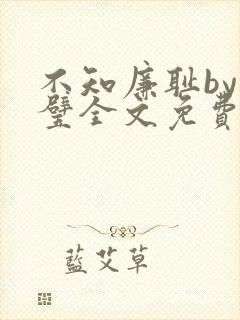 不知廉耻by
璧全文免費
藍艾草